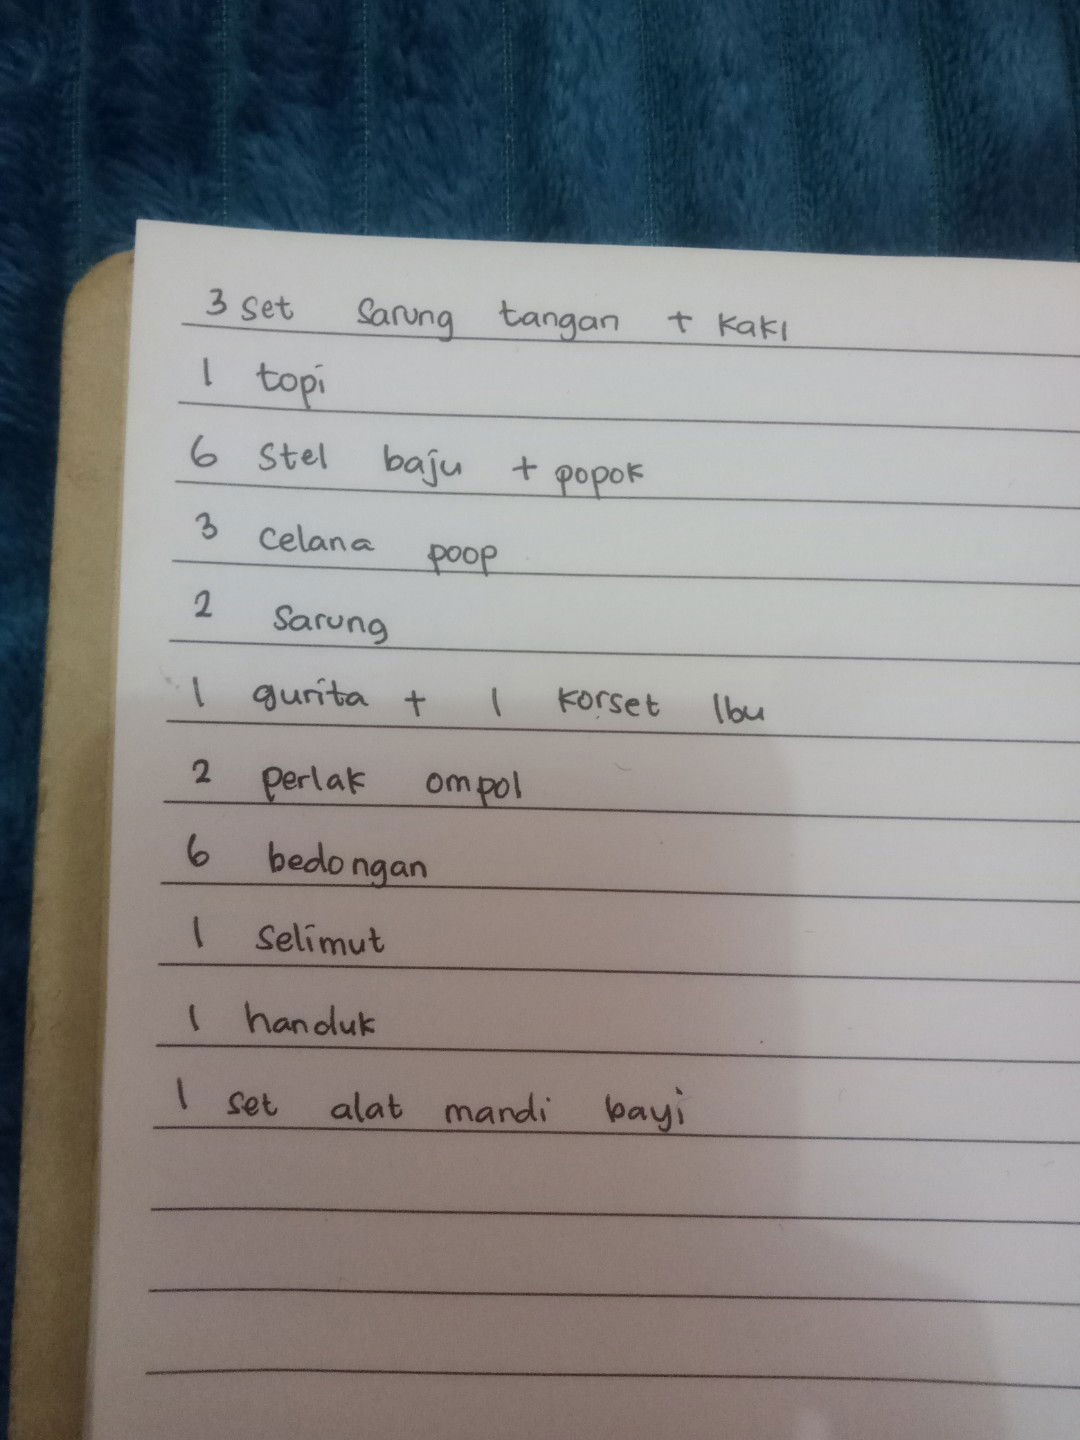 3 set sarung tangan + kaki
1 topi
6 stel baju + popok
3 celana poop
2 sarung
1 gurita + 1 korset Ibu
2 perlak ompol
6 bedongan
1 selimut
1 handuk
1 set alat mandi bayi